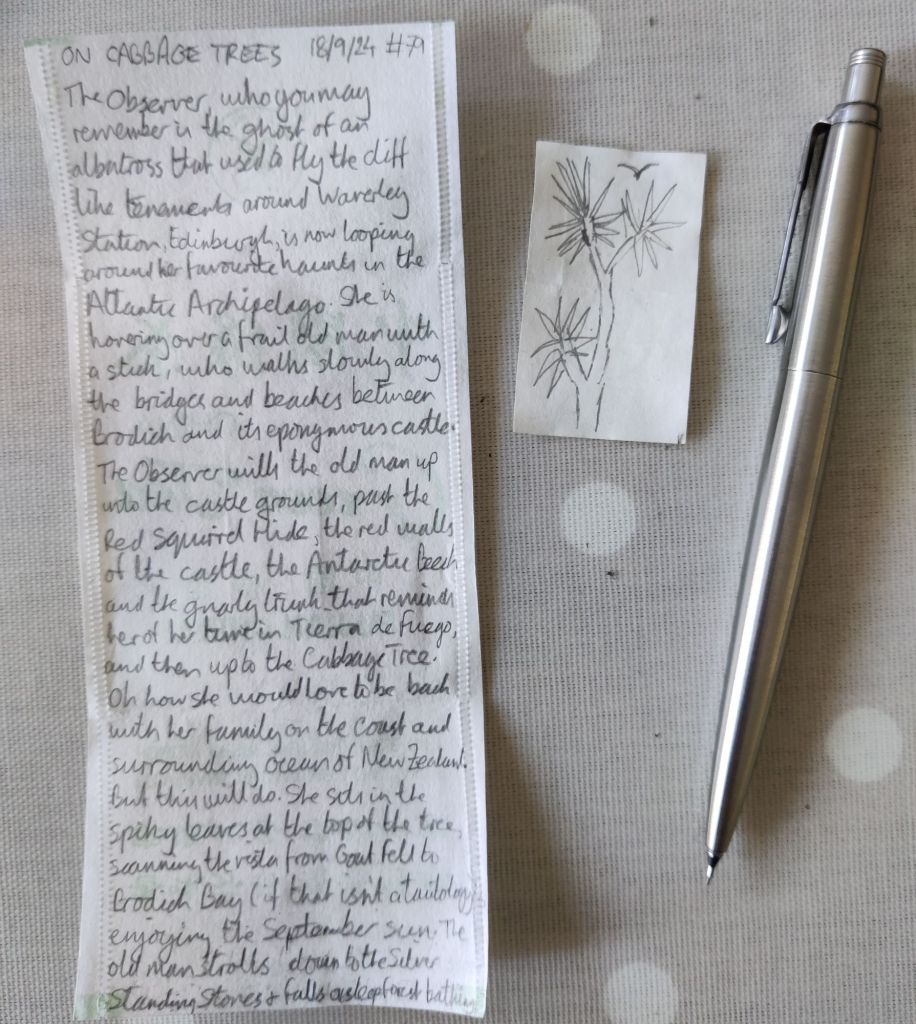 ON CABBAGE TREES 18/9/24 #79
The Observer, who you may
remember is the ghost of an
albatross that used to fly the cliff
like tenements around Waverley
Station, Edinburgh, is now looping
around her favourite haunts in the
Atlantic Archipelago. She is
hovering over a frail old man with
a stick, who walks slowly along
the bridges and beaches between
Brodick and its eponymous castle.
The Observer wills the old man up
into the castle grounds, past the
Red Squirrel Hide, the red walls
of the castle, the Antarctic Beech
and the gnarly trunk that reminds
her of her time in Tierra de Fuego,
and then up to the Cabbage Tree.
Oh how she would love to be back
with her family on the coast and
surrounding ocean of New Zealand.
but this will do. She sits in the
spiky leaves at the top of the tree,
scanning the vista from Goat Fell to
Brodick Bay (if that isn't a tautology)
enjoying the September sun. The
old man strolls down to the Silver
Standing Stones & falls asleep forest bathing